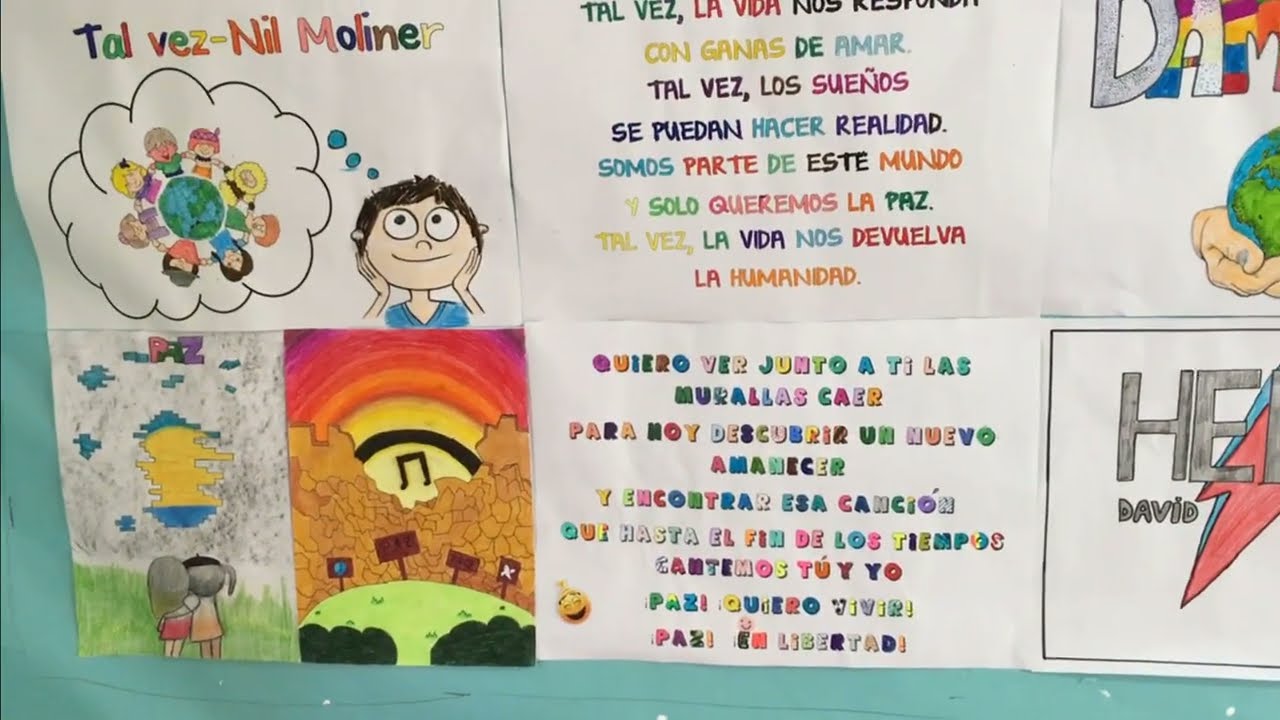 Tal vez-Nil Moliner
TAL VEZ, LA VIDA NOS RESPONDA
CON GANAS DE AMAR.
TAL VEZ, LOS SUEÑOS
SE PUEDAN HACER REALIDAD.
SOMOS PARTE DE ESTE MUNDO
Y SOLO QUEREMOS LA PAZ.
TAL VEZ, LA VIDA NOS DEVUELVA
LA HUMANIDAD.
PAZ
PAZ
QUIERO VER JUNTO A TI LAS
MURALLAS CAER
PARA HOY DESCUBRIR UN NUEVO
AMANECER
Y ENCONTRAR ESA CANCIÓN
QUE HASTA EL FIN DE LOS TIEMPOS
CANTEMOS TÚ Y YO
¡PAZ! ¡QUIERO VIVIR!
¡PAZ! ¡EN LIBERTAD!
DAVID